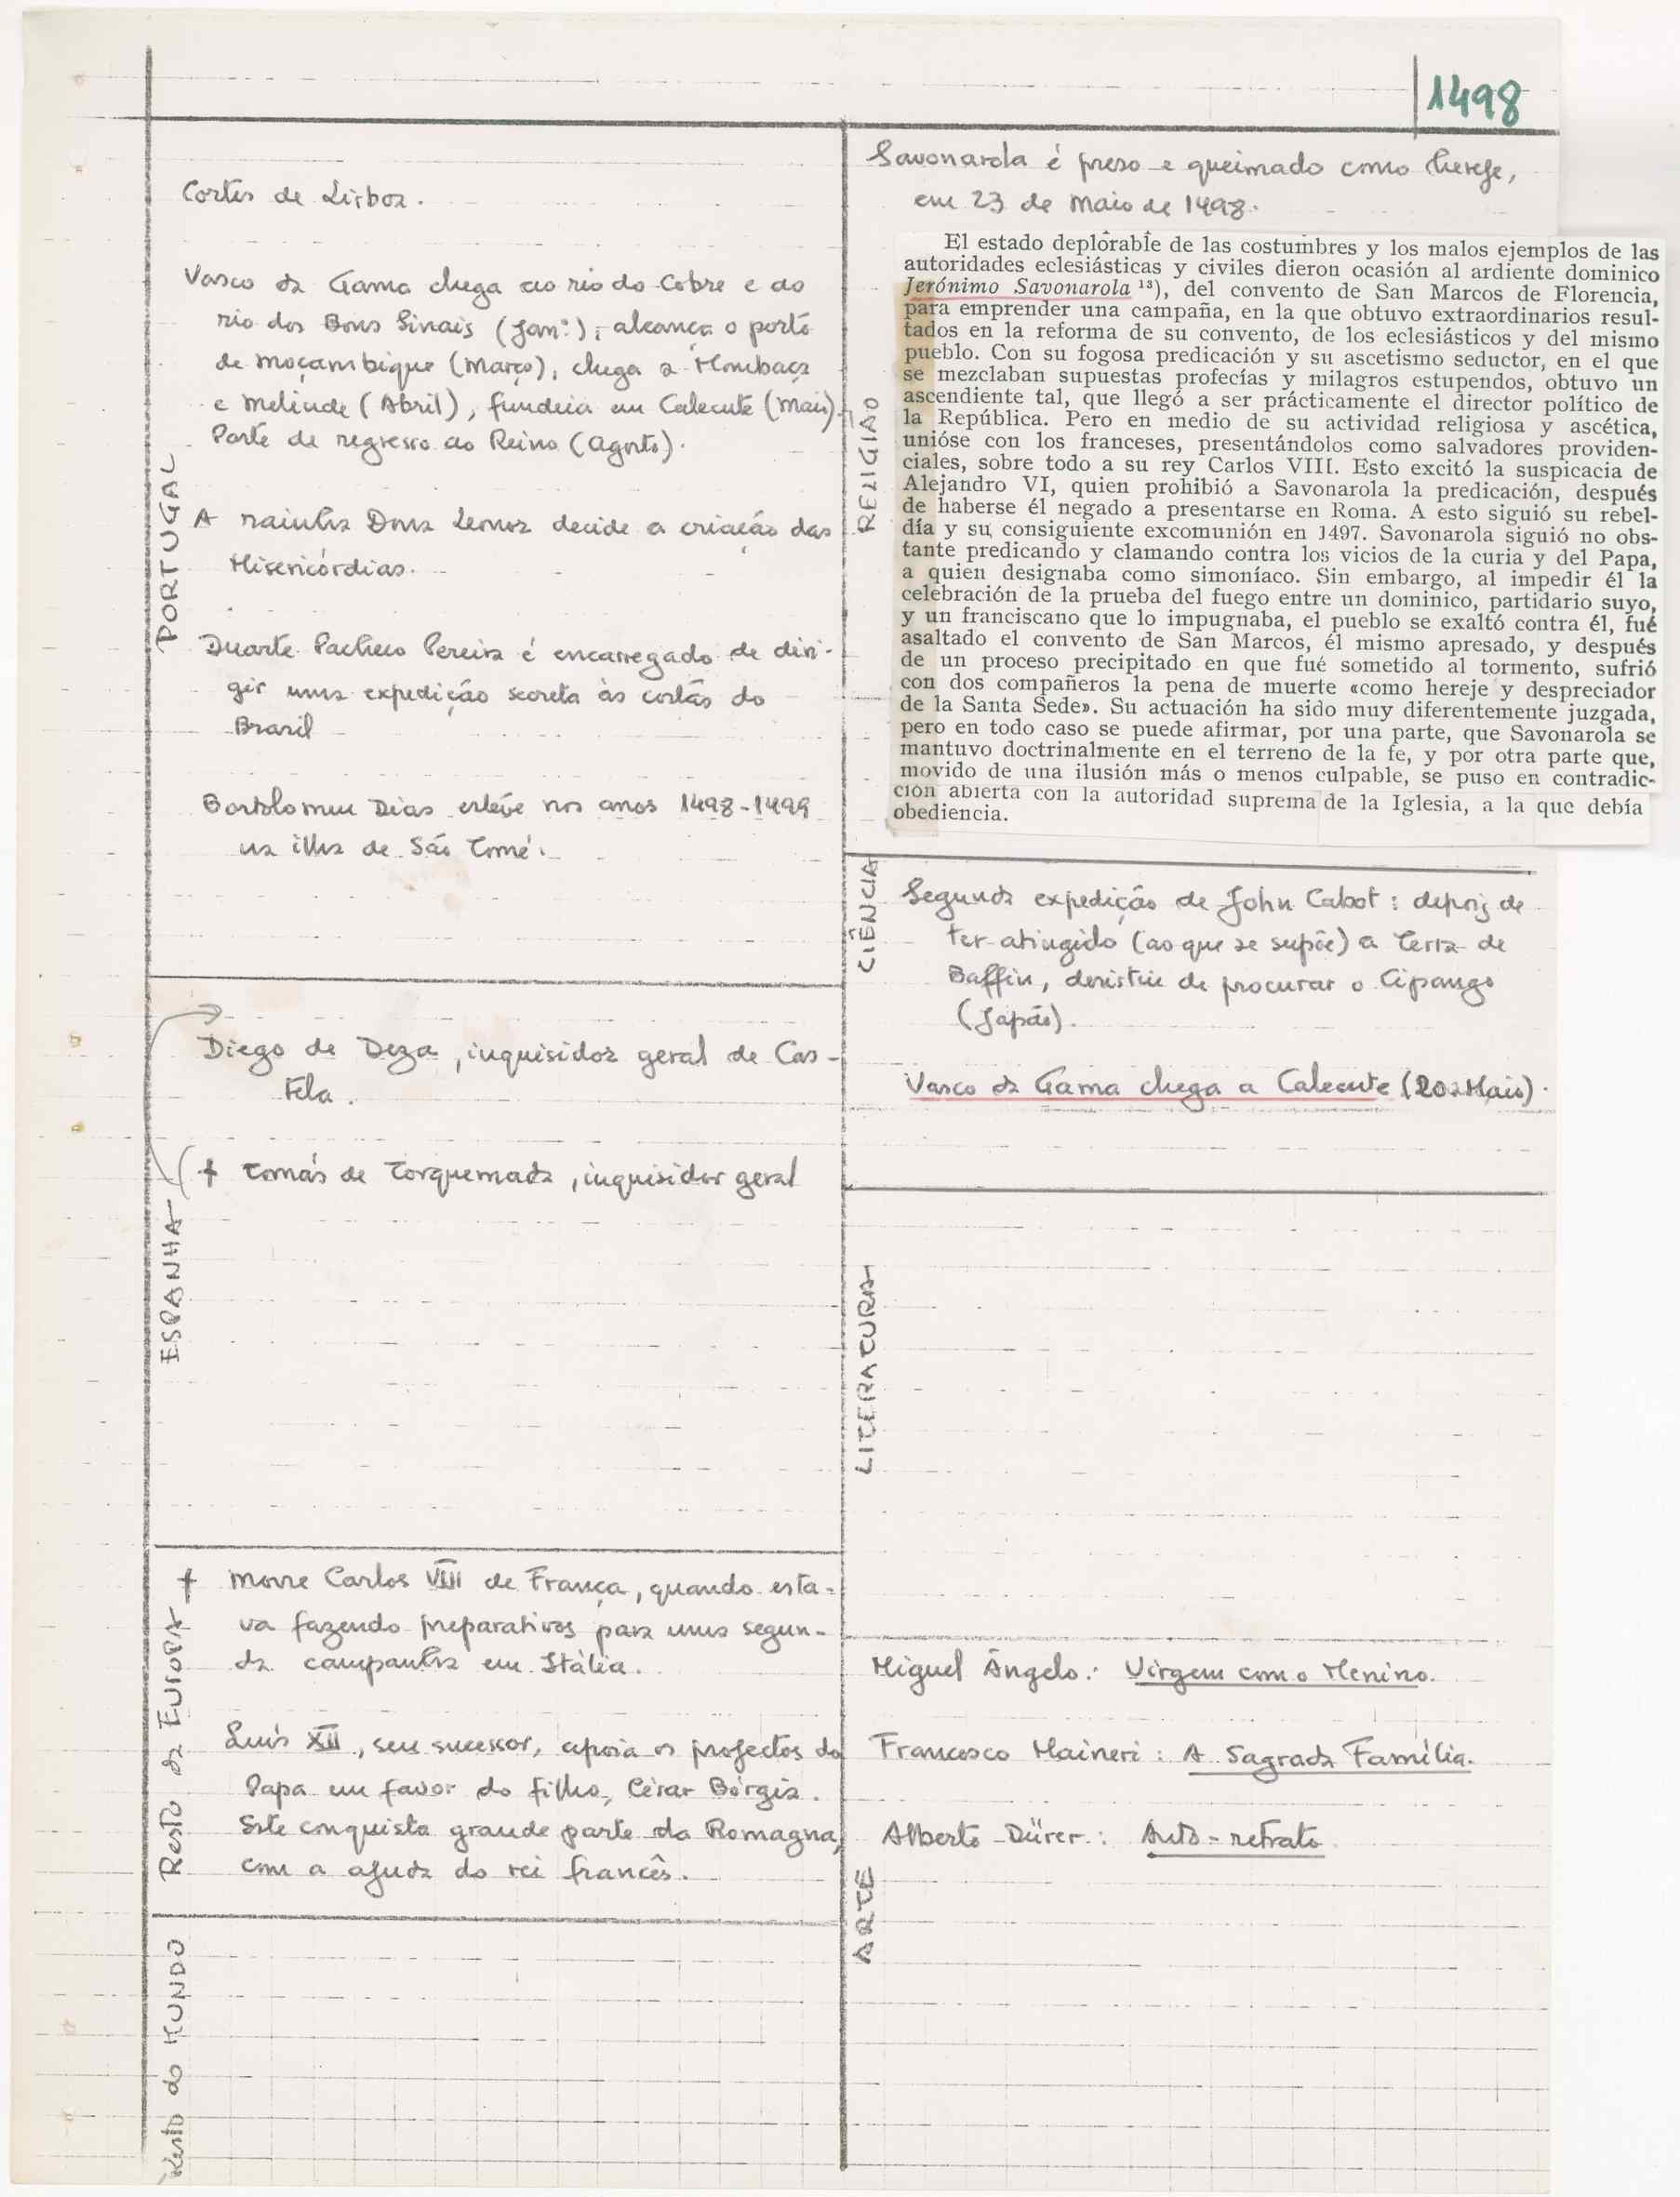 1498
PORTUGAL
Cortes de Lisboa.
Vasco da Gama chega ao rio do Cobre e ao
rio dos Bons Sinais (Jan.º); alcança o porto
de Moçambique (Março), chega a Mombaça
e Melinde (Abril), fundeia em Calecute (Maio).
Parte de regresso ao Reino (Agosto).
A rainha Dona Leonor decide a criação das
Misericórdias.
Duarte Pacheco Pereira é encarregado de diri-
gir uma expedição secreta às costas do
Brasil
Bartolomeu Dias esteve nos anos 1498-1499
na ilha de São Tomé.
ESPANHA
Diego de Deza, inquisidor geral de Cas-
tela.
† Tomás de Torquemada, inquisidor geral
Resto da EUROPA
† Morre Carlos VIII de França, quando esta-
va fazendo preparativos para uma segun-
da campanha em Itália.
Luís XII, seu sucessor, apoia os projectos do
Papa em favor do filho, César Bórgia.
Este conquista grande parte da Romagna,
com a ajuda do rei francês.
Resto do MUNDO
RELIGIÃO
Savonarola é preso e queimado como herege,
em 23 de Maio de 1498.
El estado deplorable de las costumbres y los malos ejemplos de las
autoridades eclesiásticas y civiles dieron ocasión al ardiente dominico
Jerónimo Savonarola ¹³), del convento de San Marcos de Florencia,
para emprender una campaña, en la que obtuvo extraordinarios resul-
tados en la reforma de su convento, de los eclesiásticos y del mismo
pueblo. Con su fogosa predicación y su ascetismo seductor, en el que
se mezclaban supuestas profecías y milagros estupendos, obtuvo un
ascendiente tal, que llegó a ser prácticamente el director político de
la República. Pero en medio de su actividad religiosa y ascética,
unióse con los franceses, presentándolos como salvadores providen-
ciales, sobre todo a su rey Carlos VIII. Esto excitó la suspicacia de
Alejandro VI, quien prohibió a Savonarola la predicación, después
de haberse él negado a presentarse en Roma. A esto siguió su rebel-
día y su consiguiente excomunión en 1497. Savonarola siguió no obs-
tante predicando y clamando contra los vicios de la curia y del Papa,
a quien designaba como simoníaco. Sin embargo, al impedir él la
celebración de la prueba del fuego entre un dominico, partidario suyo,
y un franciscano que lo impugnaba, el pueblo se exaltó contra él, fué
asaltado el convento de San Marcos, él mismo apresado, y después
de un proceso precipitado en que fué sometido al tormento, sufrió
con dos compañeros la pena de muerte «como hereje y despreciador
de la Santa Sede». Su actuación ha sido muy diferentemente juzgada,
pero en todo caso se puede afirmar, por una parte, que Savonarola se
mantuvo doctrinalmente en el terreno de la fe, y por otra parte que,
movido de una ilusión más o menos culpable, se puso en contradic-
ción abierta con la autoridad suprema de la Iglesia, a la que debía
obediencia.
CIÊNCIA
Segunda expedição de John Cabot: depois de
ter atingido (ao que se supõe) a Terra de
Baffin, desistiu de procurar o Cipango
(Japão).
Vasco da Gama chega a Calecute (20 Maio).
LITERATURA
ARTE
Miguel Ângelo: Virgem com o Menino.
Francesco Maineri: A Sagrada Família.
Alberto Dürer: Auto-retrato